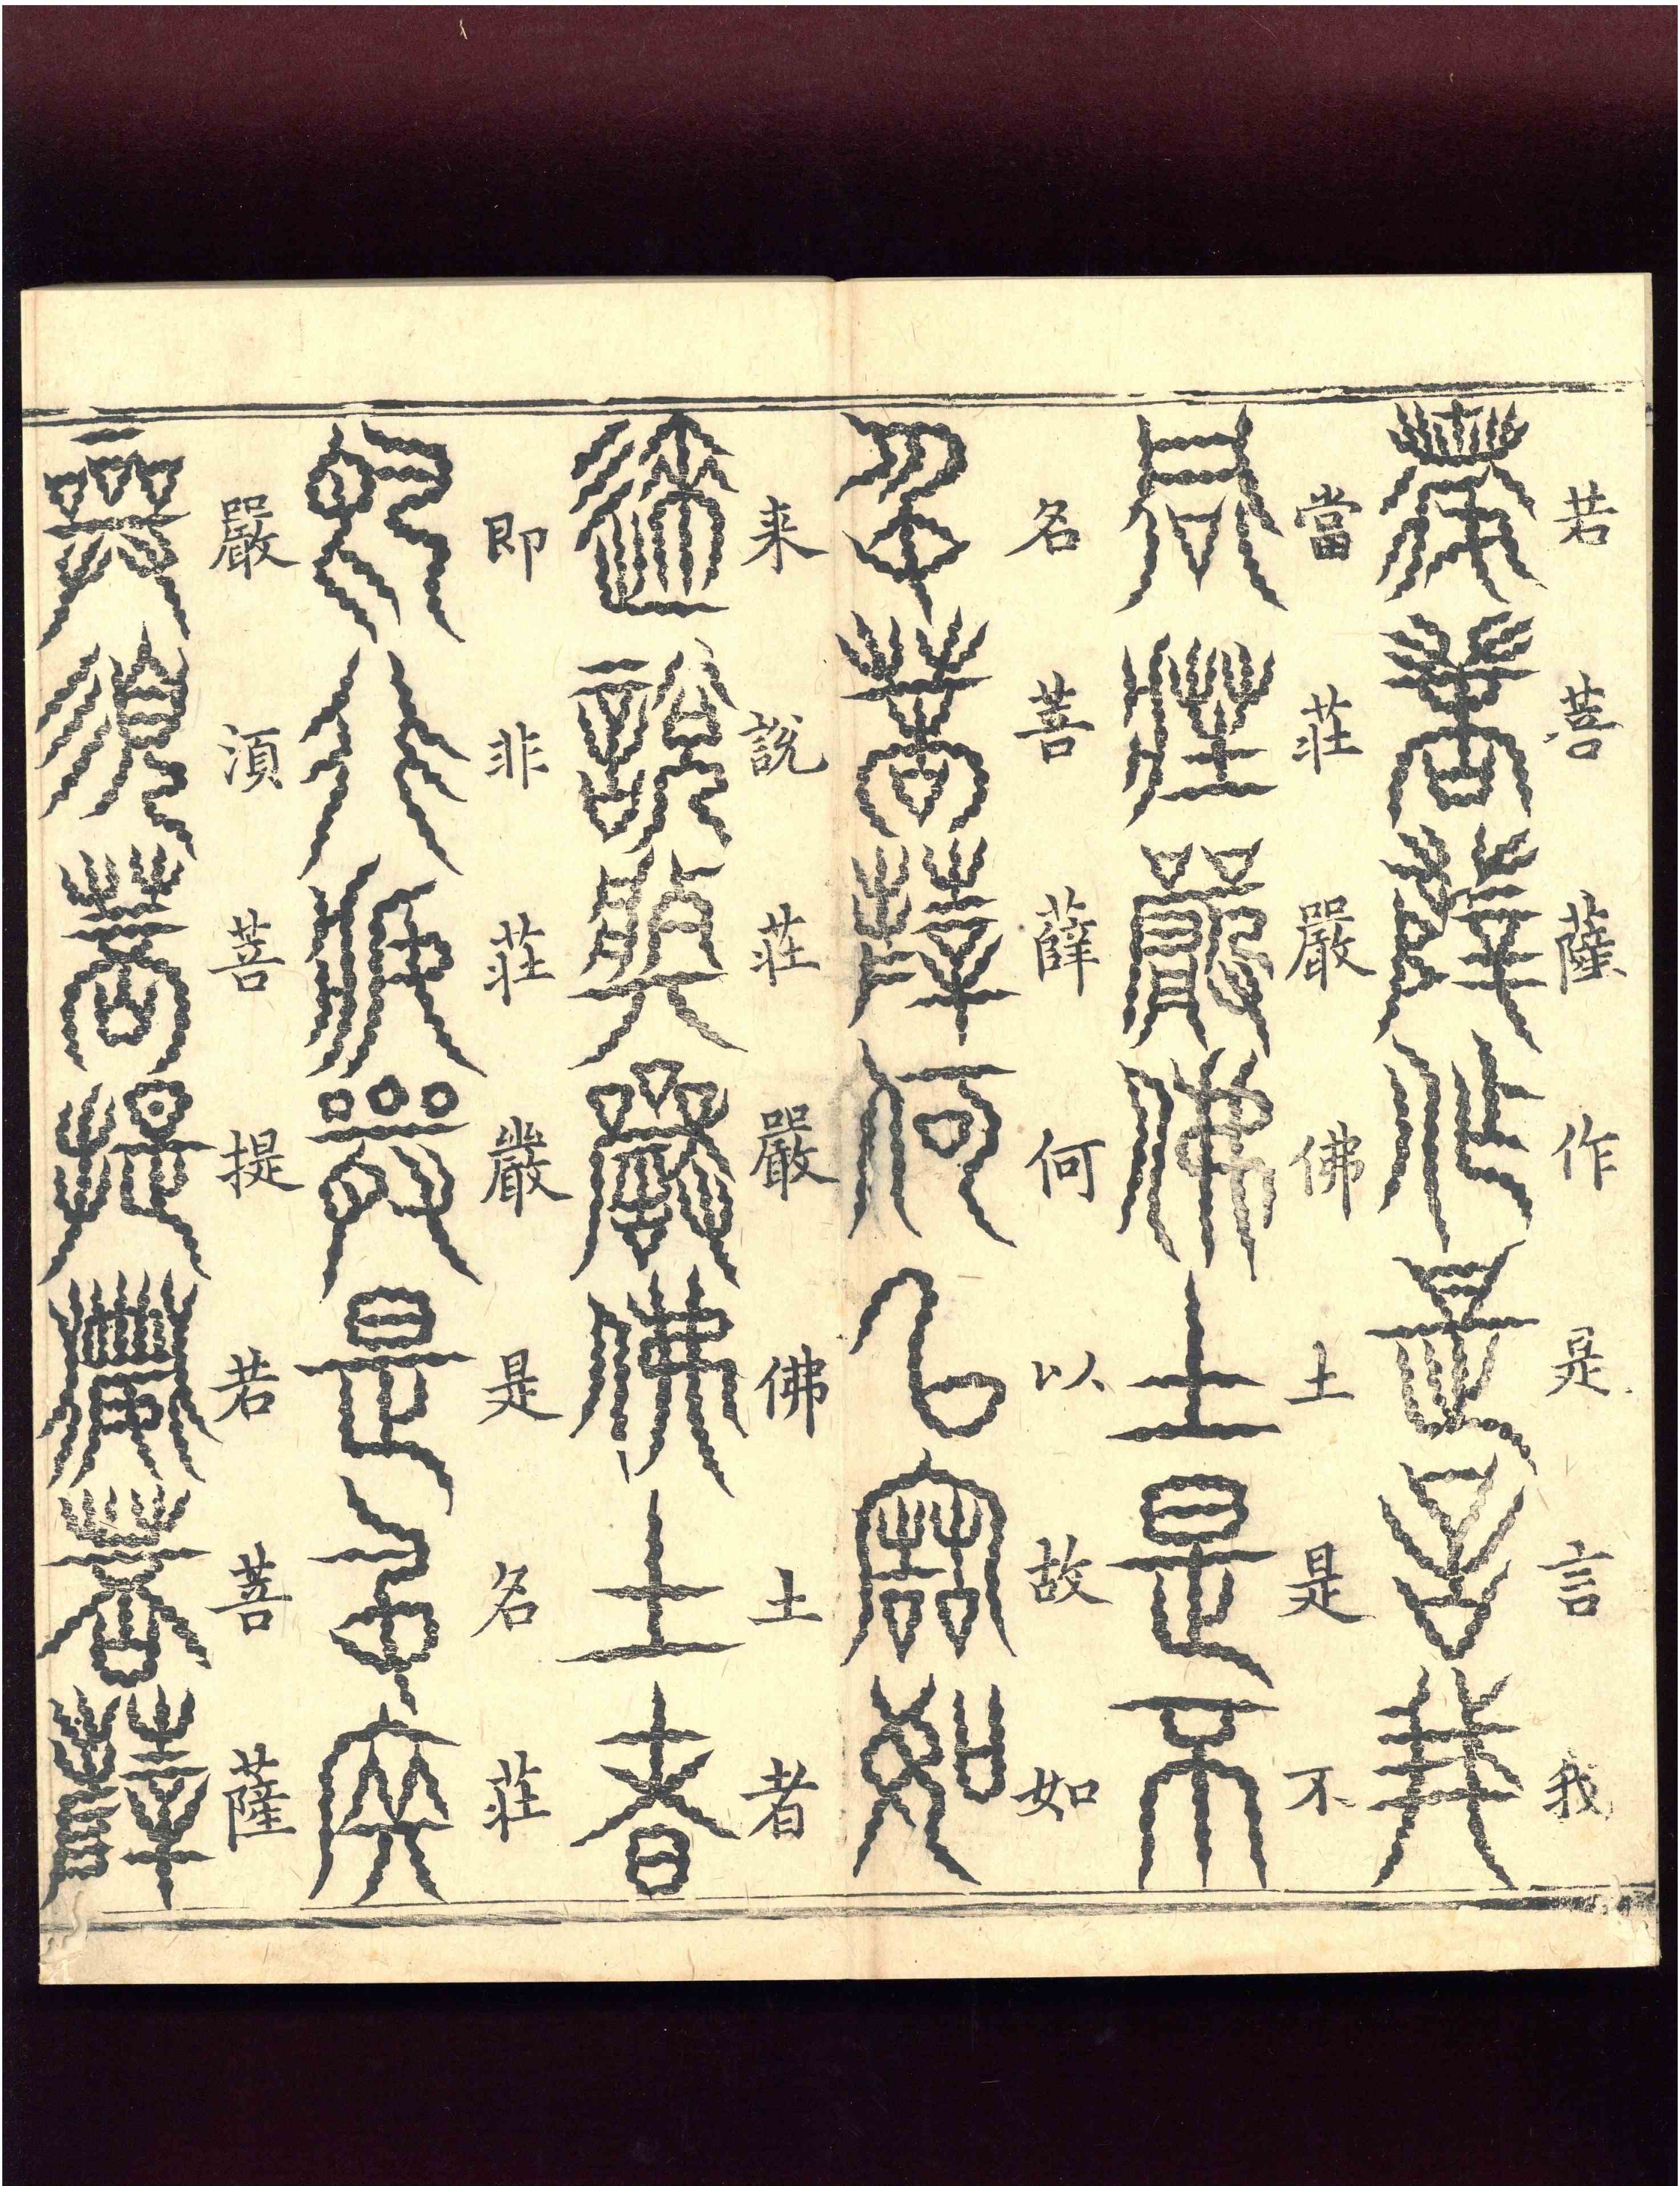 若菩薩作是言我
當荘嚴佛土是不
名菩薛何以故如
来說荘嚴佛土者
即非荘嚴是名荘
嚴湏菩提若菩薩